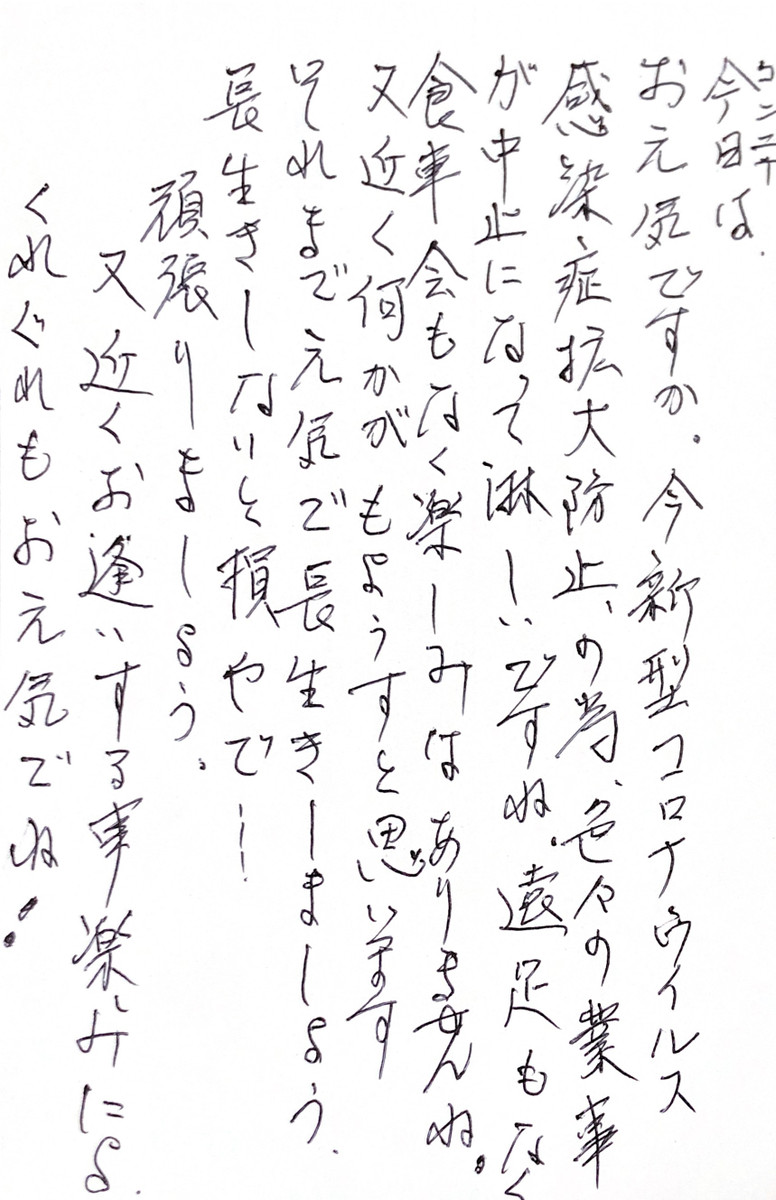 コンニチ
今日は.
お元気ですか。今新型コロナウイルス
感染症拡大防止、の為、色々の業事
が中止になって淋しいですね。遠足もなく
食事会もなく楽しみはありませんね。
又近く何かがもようすと思います
それまで元気で長生きしましょう.
長生きしないと損やでー!
頑張りましょう。
又近くお逢いする事楽みによ.
くれぐれもお元気でね!